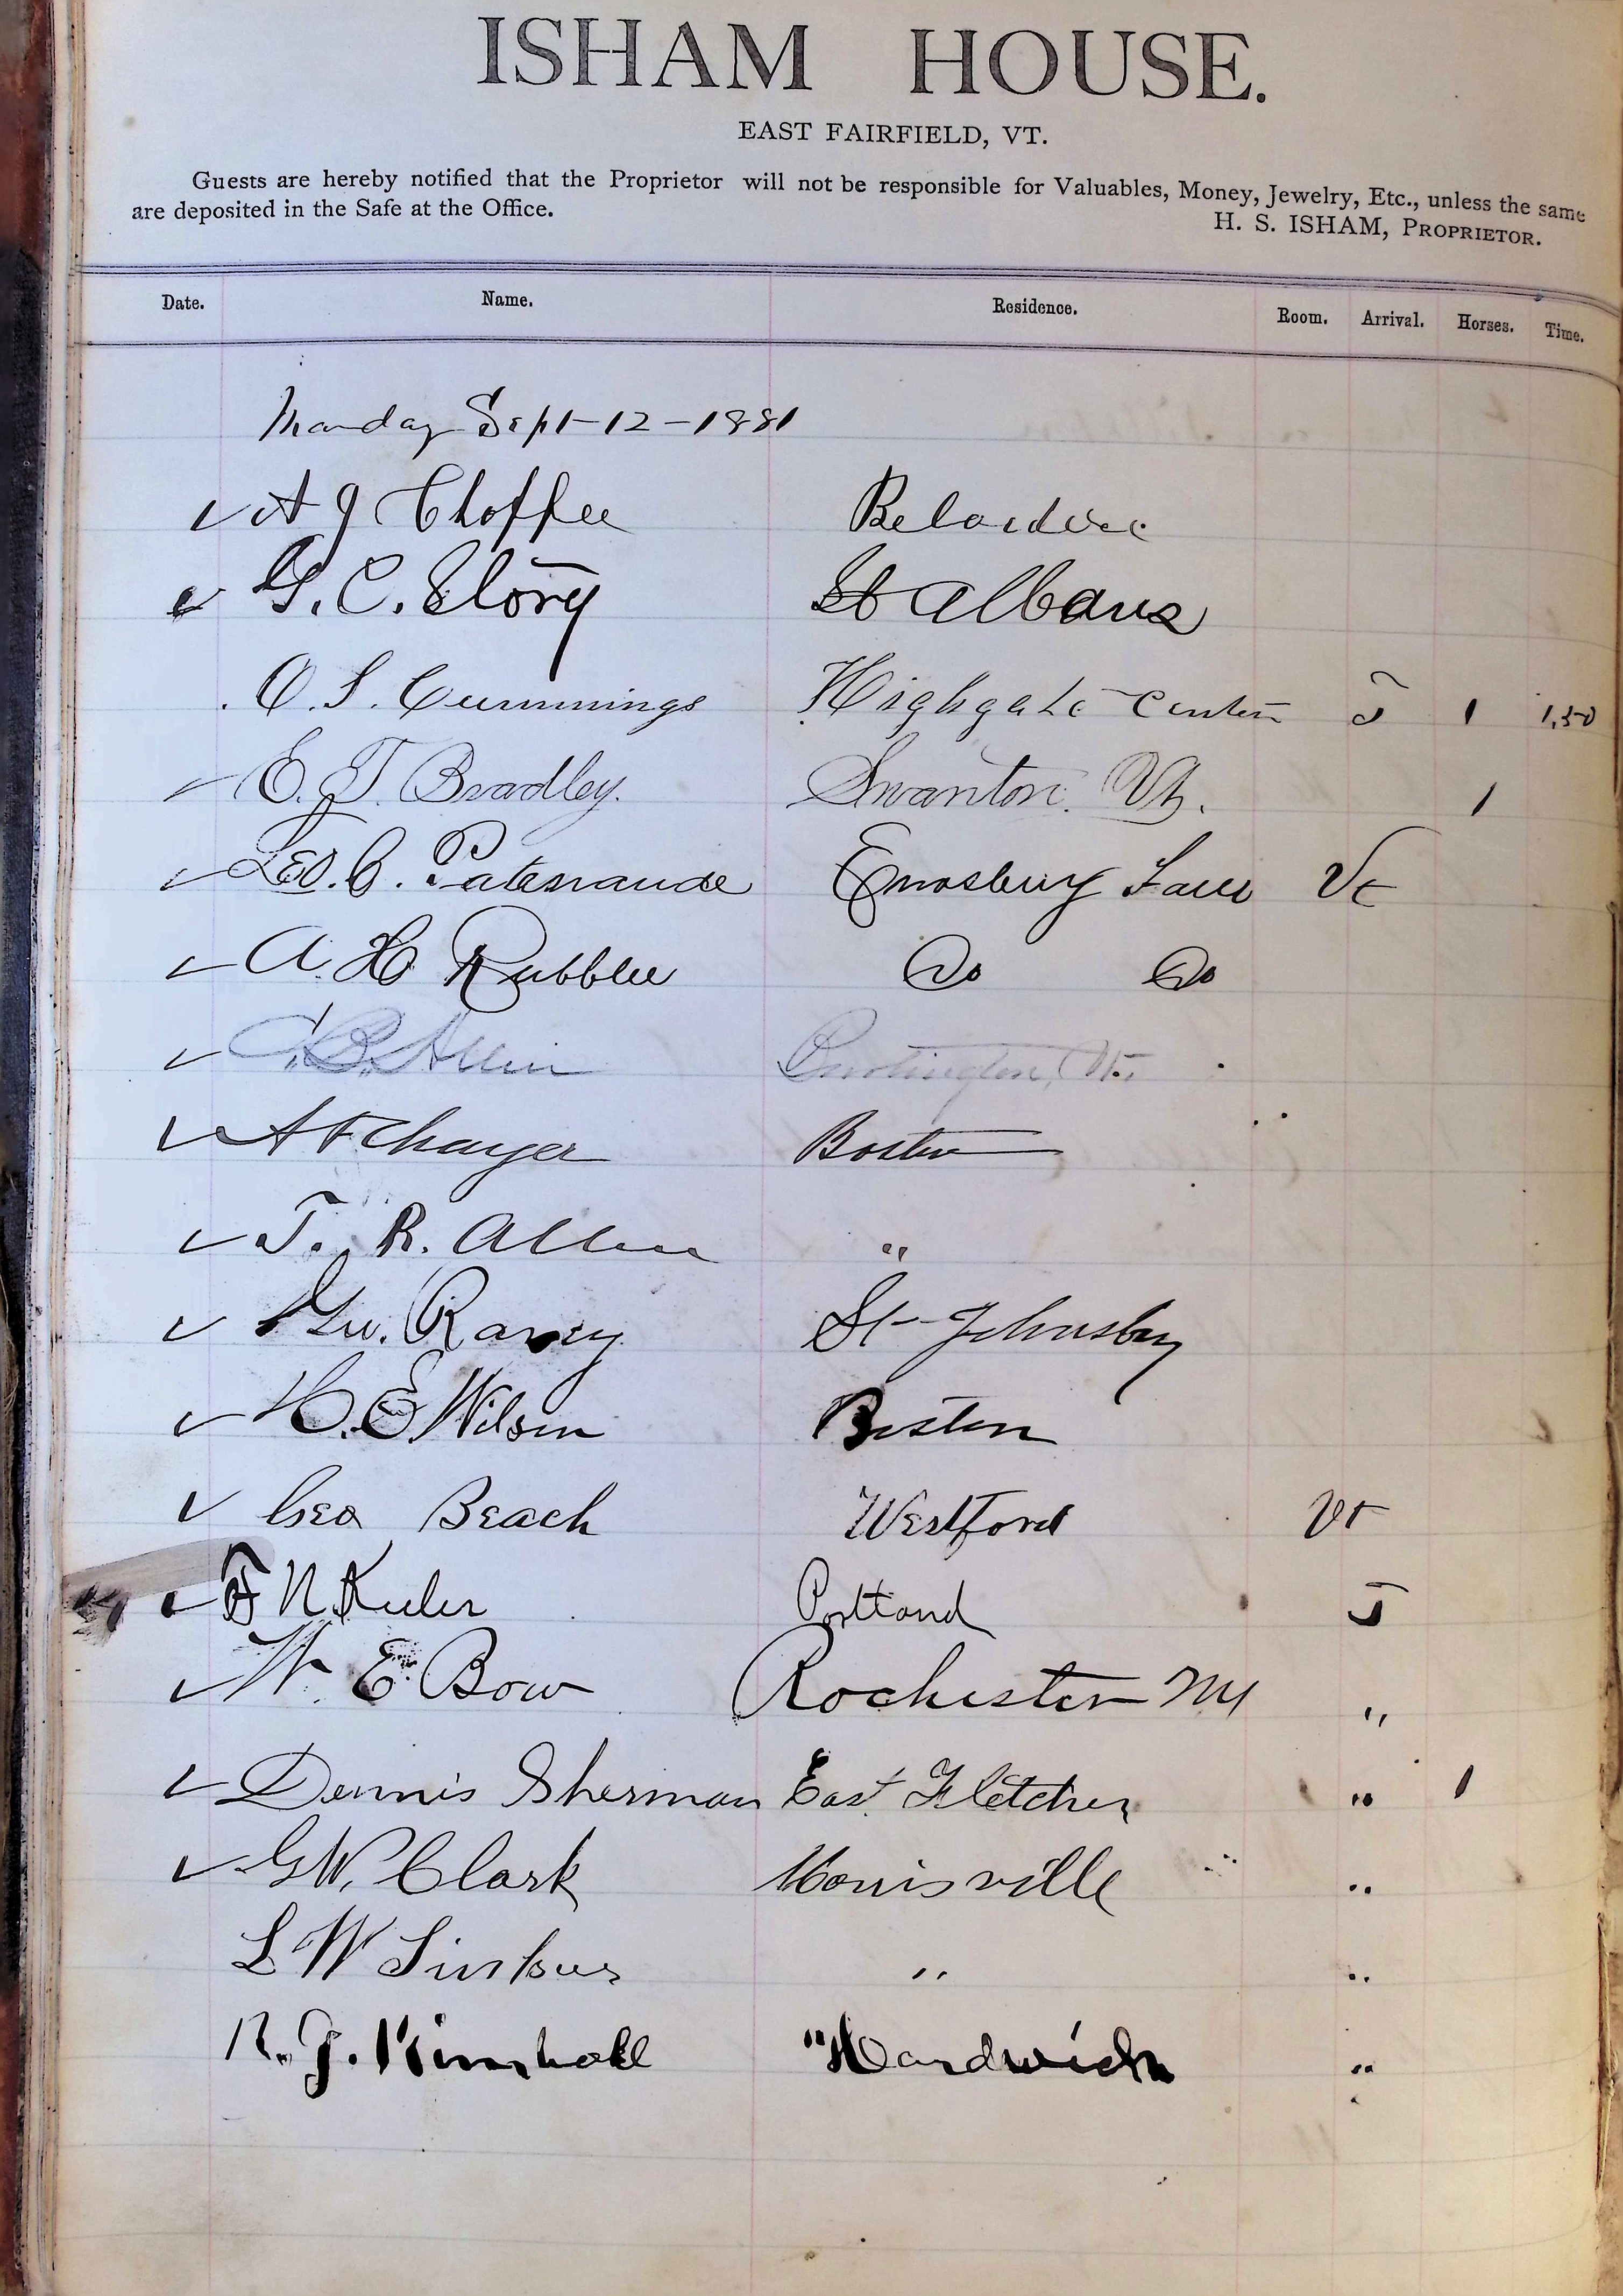 ISHAM HOUSE.
EAST FAIRFIELD, VT.
Guests are hereby notified that the Proprietor will not be responsible for Valuables, Money, Jewelry, Etc., unless the same
are deposited in the Safe at the Office.
H. S. ISHAM, PROPRIETOR.
Date. Name. Residence. Room. Arrival. Horses. Time.
Monday Sept-12-1881
✓ A J Chaffee Belvidere
✓ G. C. Story St Albans
O. S. Cummings Highgate Center 1 1,50
✓ E. T. Bradley. Swanton. Vt. 1
✓ Leo. C. Patenaude Enosburg Falls Vt
✓ A. H. Rubblee Do Do
✓ C. B. Allen Burlington, Vt.
✓ A F Thayer Boston
✓ T. R. Allen "
✓ Geo. Ranny St-Johnsbury
✓ H. E. Wilson Boston
✓ Geo Beach Westford Vt
✓ F N Keeler Portland
✓ W. E. Bow Rochester NY "
✓ Dennis Sherman East Fletcher " 1
✓ G W. Clark Morrisville "
L W " "
R. J. Kimball " Hardwick "